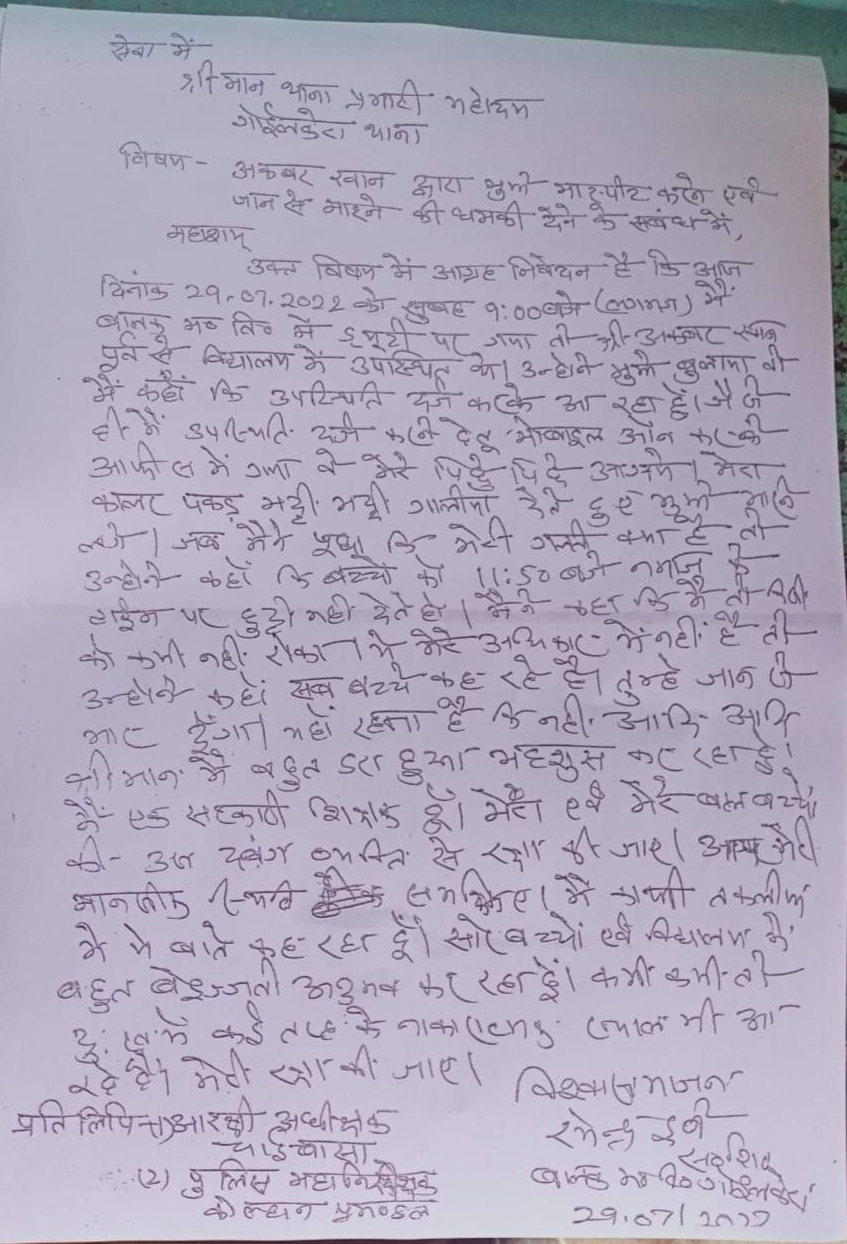 सेवा में
श्रीमान थाना प्रभारी महोदय
गोईलकेरा थाना
विषय - अकबर खान द्वारा मुझे मारपीट करने एवं
जान से मारने की धमकी देने के संबंध में,
महाशय
उक्त बिषय में आग्रह निवेदन है कि आज
दिनांक 29.07.2022 को सुबह 9:00 बजे (लगभग) मैं
बालक म० वि० में ड्यूटी पर गया तो श्री अकबर खान
पूर्व से विद्यालय में उपस्थित थे। उन्होने मुझे बुलाया तो
मैं कहाँ कि उपस्थिति दर्ज करके आ रहा हूँ। जैसे
ही मैं उपस्थिति दर्ज करने हेतु मोबाइल ऑन करके
आफीस में गया वे मेरे पिछे पिछे आ गये। मेरा
कालर पकड़ भद्दी भद्दी गालीयां देते हुए मुझे मारने
लगे। जब मैंने पूछा कि मेरी गलती क्या है तो
उन्होने कहाँ कि बच्चों को 11:50 बजे नमाज के
टाईम पर छुट्टी नही देते हो। मैंने कहा कि मैं तो किसी
को कभी नहीं रोका। ये मेरे अधिकार में नहीं है तो
उन्होने कहाँ सब बच्चे कह रहे है। तुम्हे जान से
मार दूँगा। यहाँ रहना है कि नही. आदि आदि
श्रीमान मैं बहुत डरा हुआ महशुस कर रहा हूँ।
मैं एक सरकारी शिक्षक हूँ। मेरा एवं मेरे बाल बच्चों
की उस दबंग व्यक्ति से रक्षा की जाए। आप मेरी
मानसीक स्थिति समझिए। मैं काफी तकलीफ
में ये बाते कह रहा हूँ। सारे बच्चों एवं विद्यालय में
बहुत बेइज्जती अनुभव कर रहा हूँ। कभी कभी तो
दुःख में कई तरह के नाकारात्मक ख्याल भी आ
रहे है। मेरी रक्षा की जाए।
विश्वासभाजन
प्रतिलिपि (1) आरक्षी अधीक्षक
चाईबासा
(2) पुलिस महानिरीक्षक
कोल्हान प्रमण्डल
रमेन्द्र
बालक म० वि० गोईलकेरा
29.07/2022